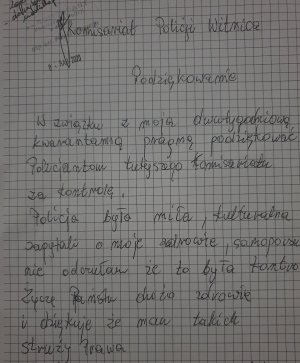 Komisariat Policji Witnica
Podziękowanie
W związku z moją dwutygodniową
kwarantanną pragnę podziękować
Policjantom tutejszego Komisariatu
za kontrolę.
Policja była miła, kulturalna
zapytali o moje zdrowie, samopoczu
nie odczułam że to była kontro
Życzę Państwu dużo zdrowia
i dziękuję że mam takich
Stróży Prawa